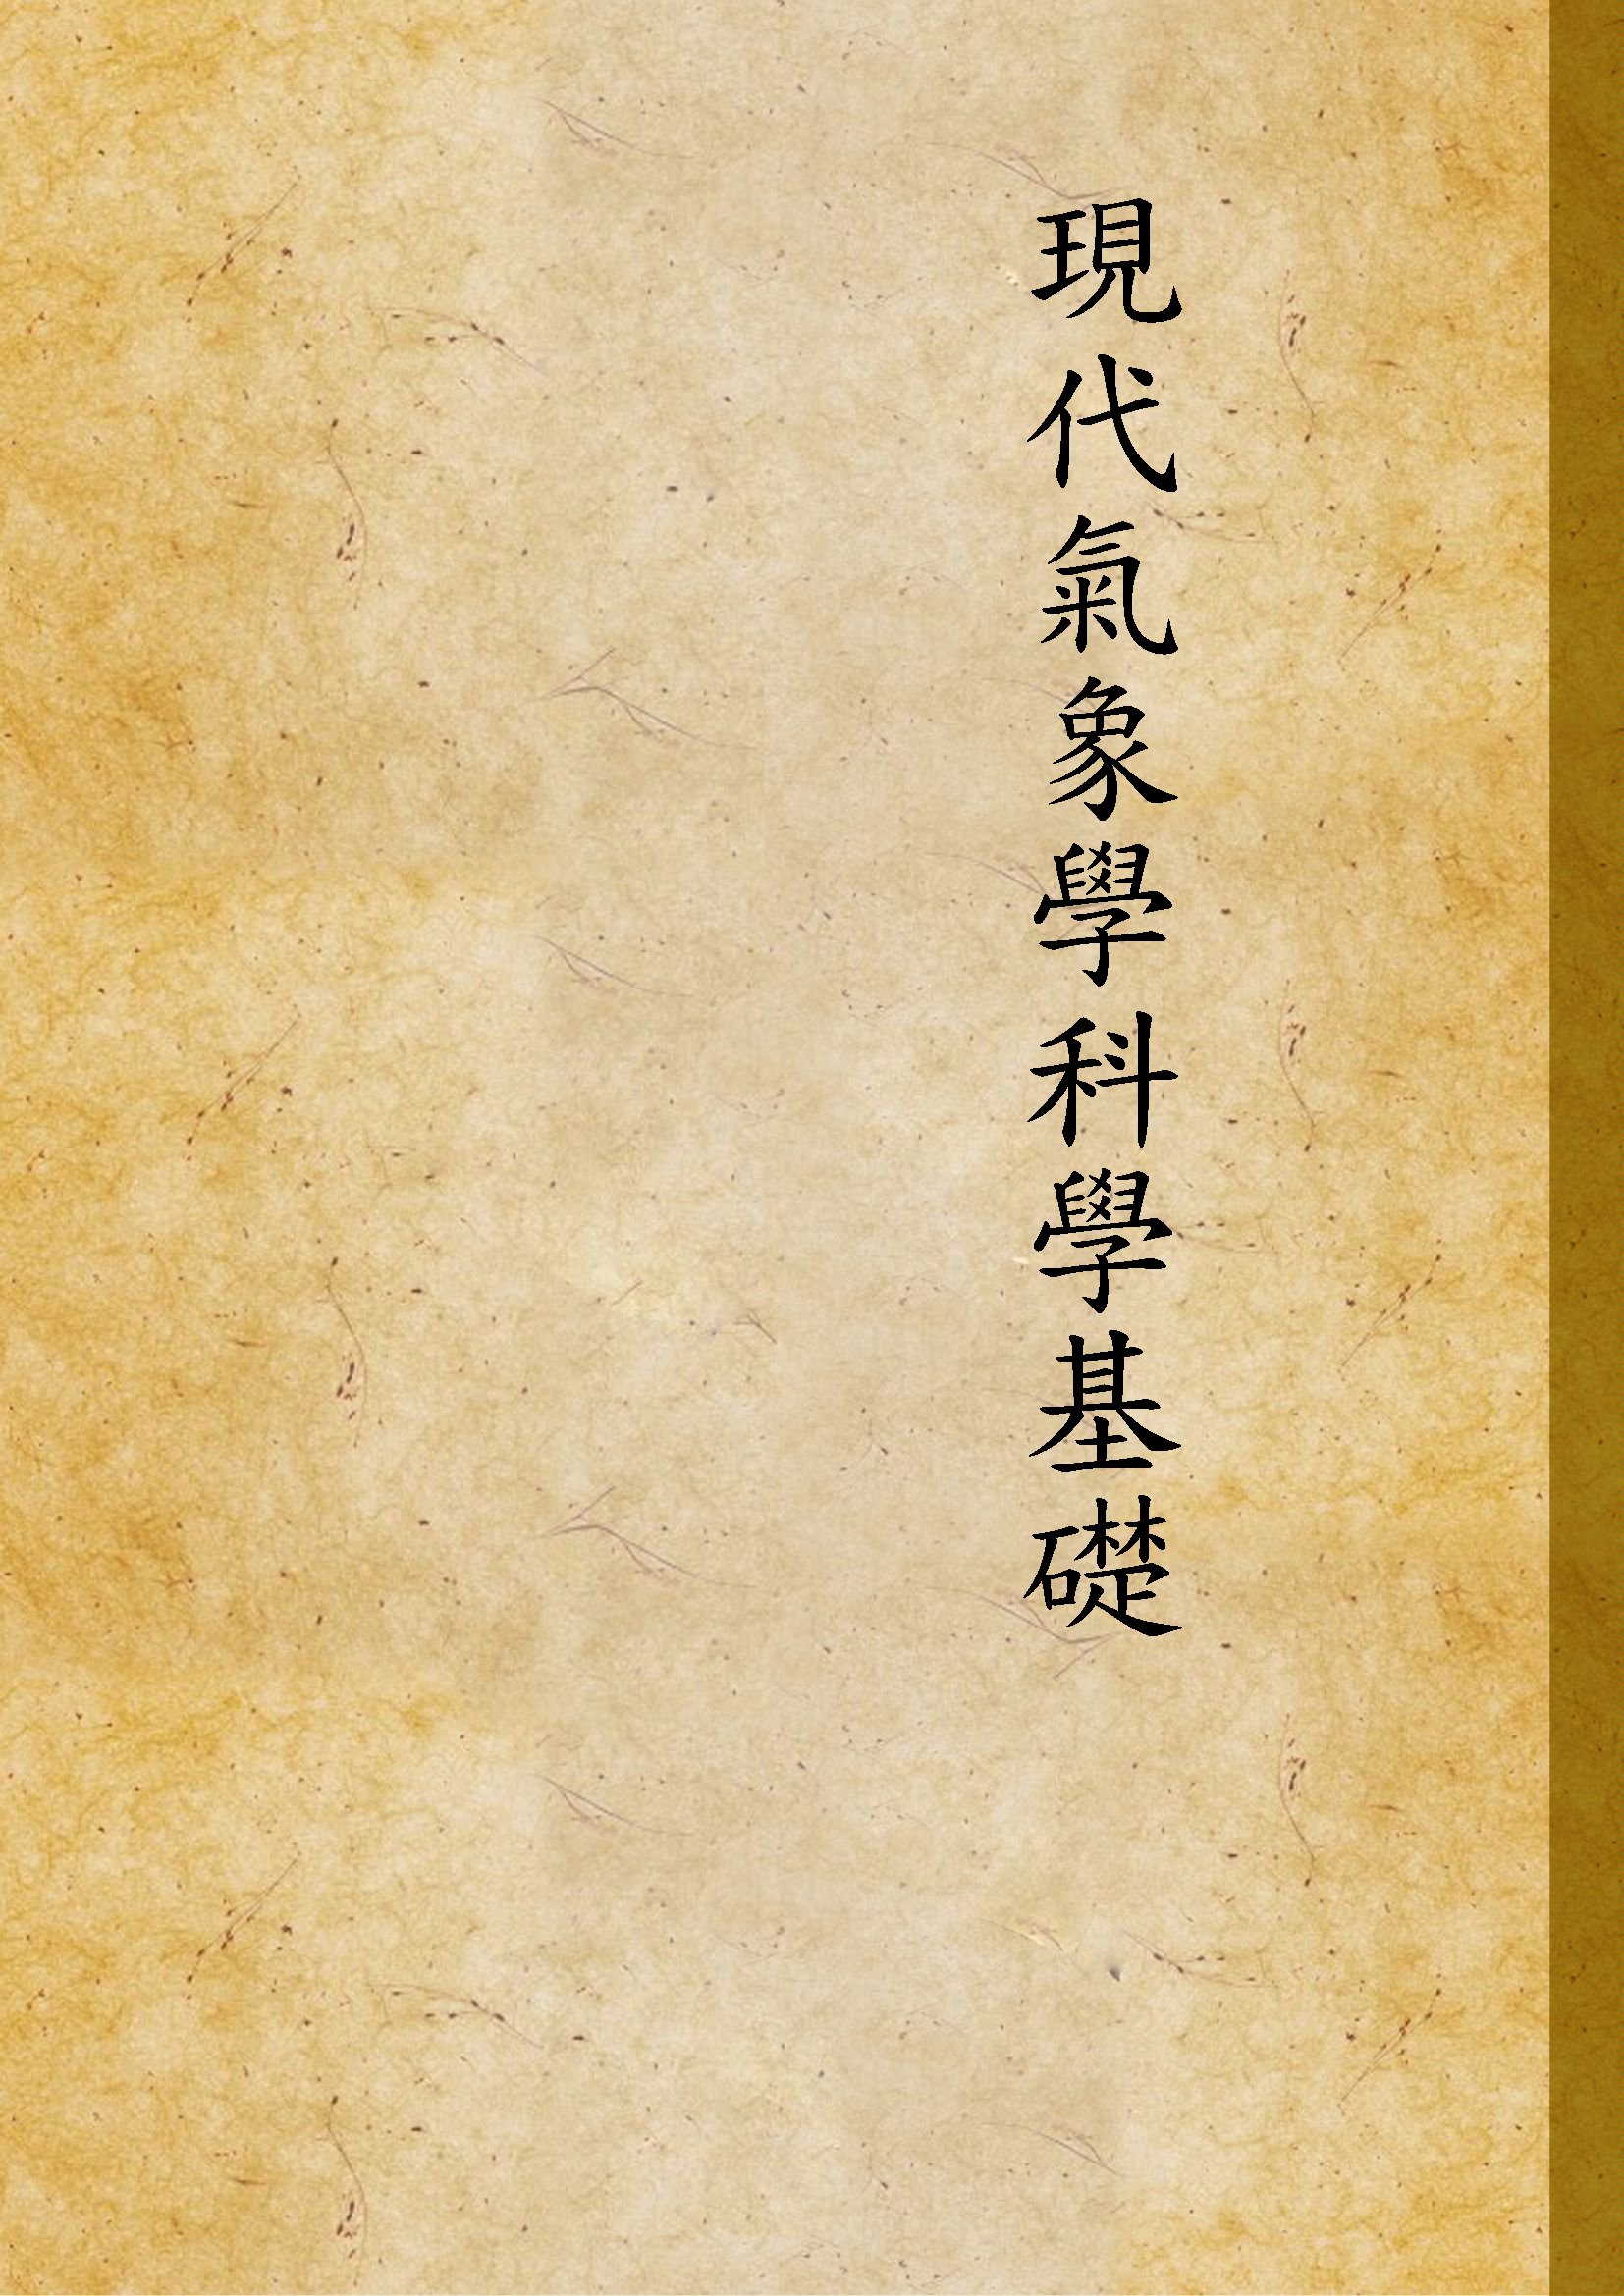 現代氣象學科學基礎